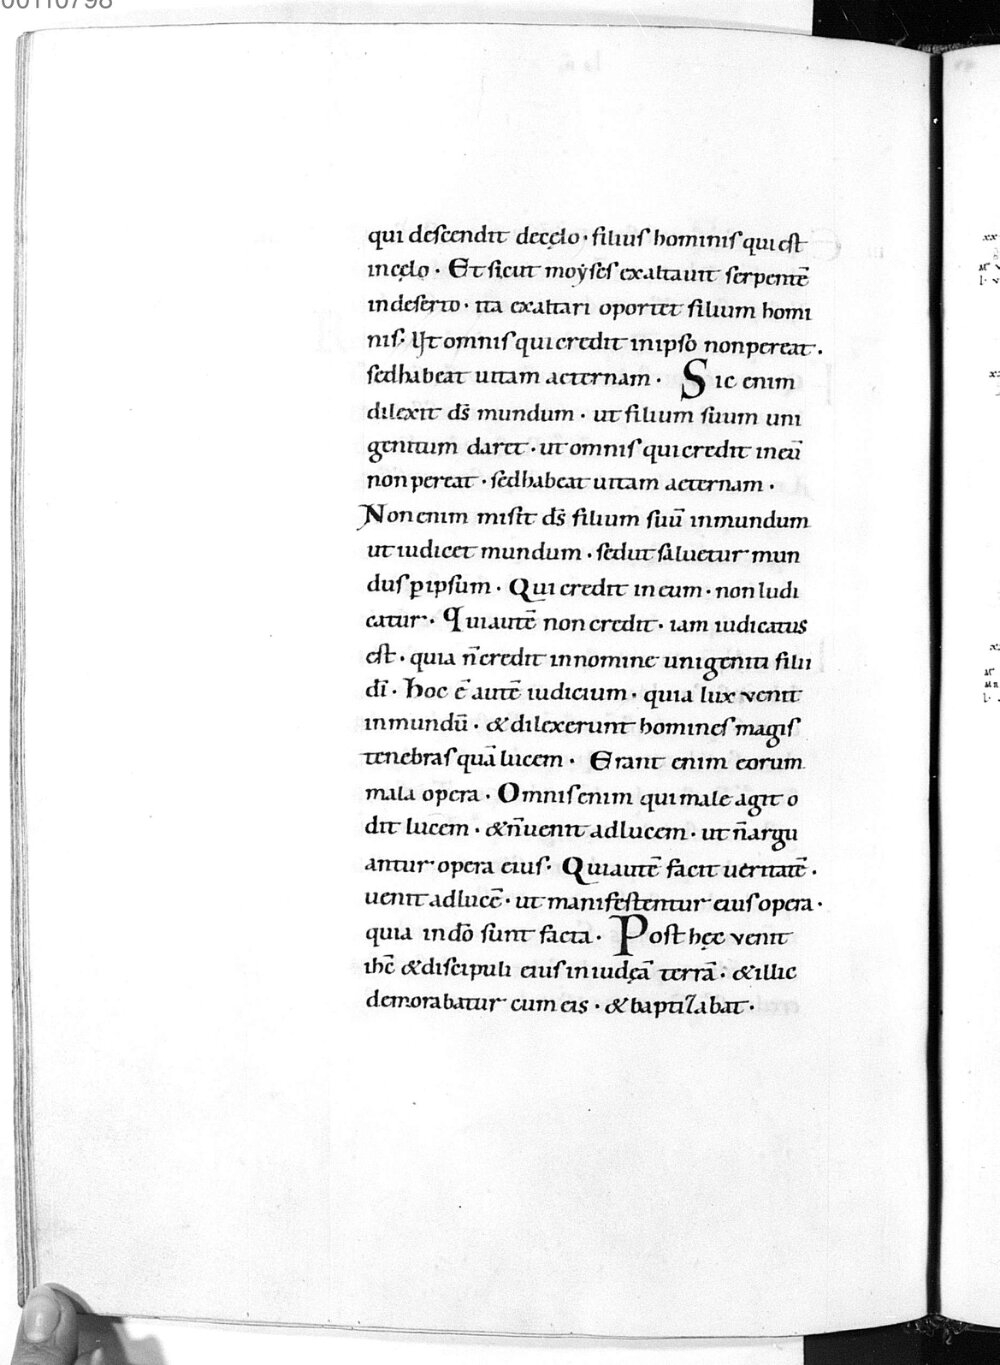 00110798
qui descendit decęlo · filius hominis qui est
incęlo · Et sicut moẏses exaltauit serpentē
indeserto · ita exaltari oportet filium homi
nis · Ut omnis qui credit inipso nonpereat ·
sedhabeat uitam aeternam · Sic enim
dilexit ds̄ mundum · ut filium suum uni
genitum daret · ut omnis qui credit ineū
non pereat · sedhabeat uitam aeternam ·
Non enim misit ds̄ filium suū inmundum
ut iudicet mundum · sedut saluetur mun
dus ꝑipsum · Qui credit in eum · non iudi
catur · Quiautē non credit · iam iudicatus
est · quia n̄credit innomine unigeniti filii
dī · Hoc ē autē iudicium · quia lux venit
inmundū · &dilexerunt homines magis
tenebras quā lucem · Erant enim eorum
mala opera · Omnis enim qui male agit o
dit lucem · &n̄uenit adlucem · ut n̄argu
antur opera eius · Quiautē facit ueritatē ·
uenit adlucē · ut manifestentur eius opera ·
quia indō sunt facta · Post hęc venit
ihc̄ &discipuli eius in iudęā terrā · &illic
demorabatur cum eis · &baptizabat ·